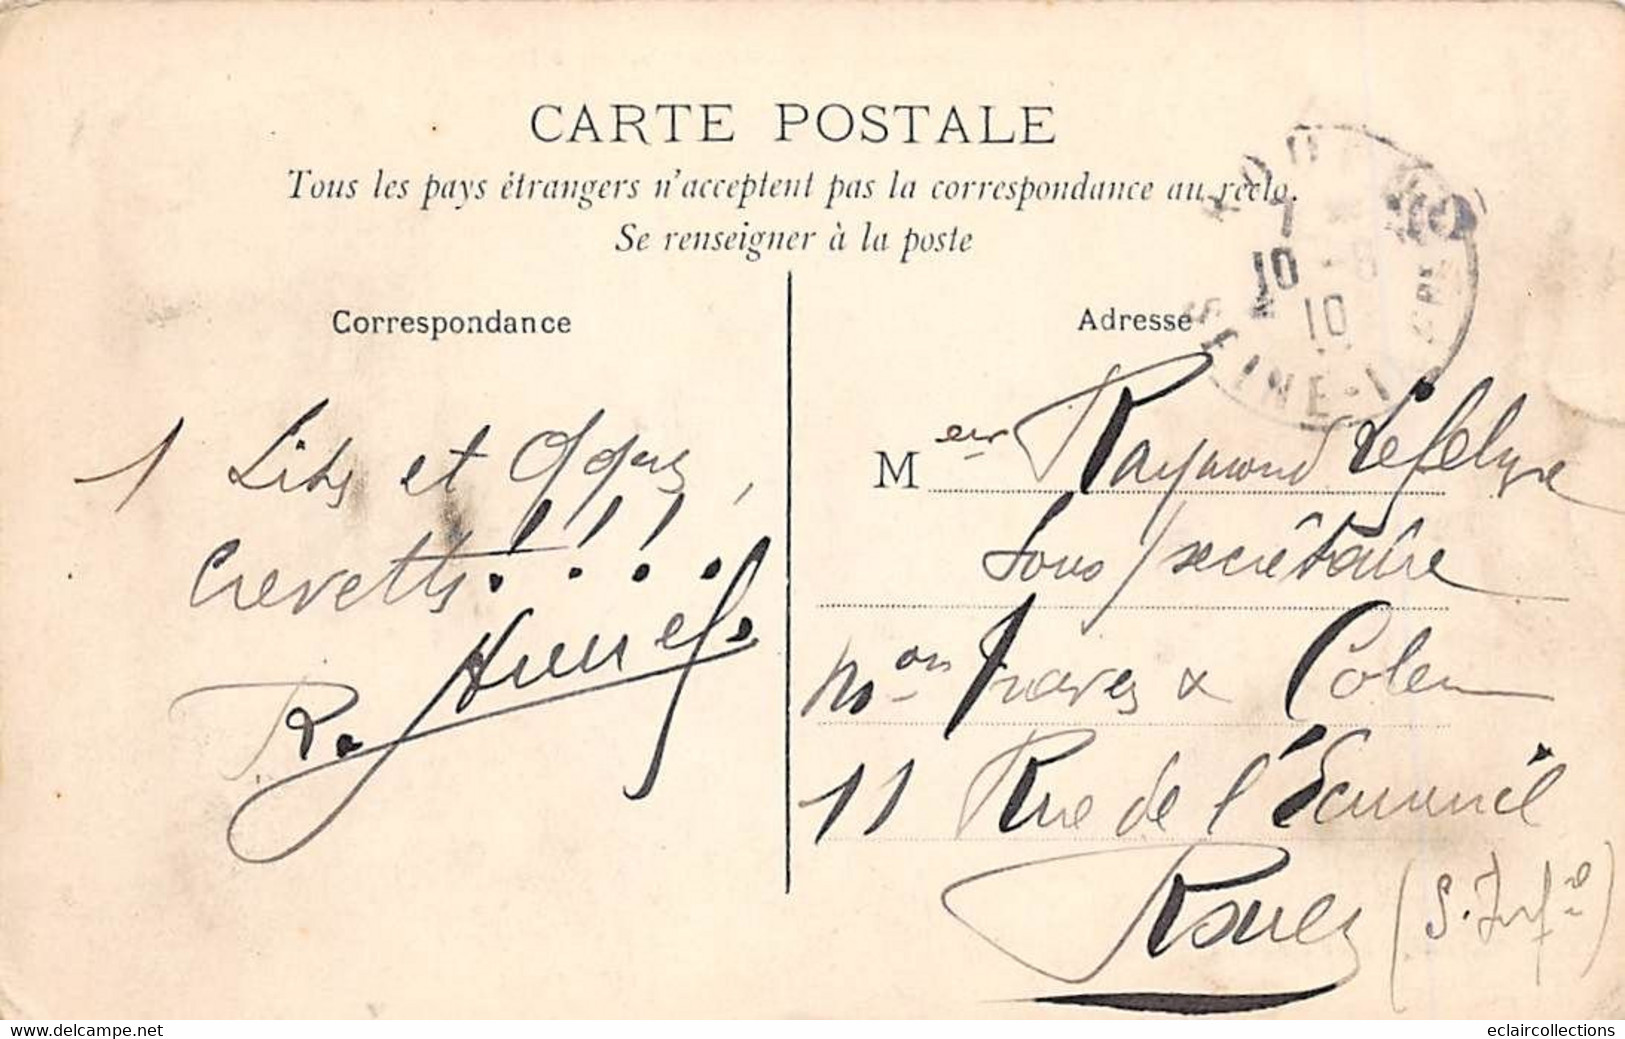 CARTE POSTALE
Tous les pays étrangers n'acceptent pas la correspondance au recto.
Se renseigner à la poste
Correspondance
1 Lits et
Crevettes!!!!
R.
Adresse
10
10
SEINE-INFRE
Meur Raymond Lefebvre
Sous secrétaire
Mon & Colen
11 Rue de l'Ecureuil
Rouen (S. Infre)
www.delcampe.net
eclaircollections